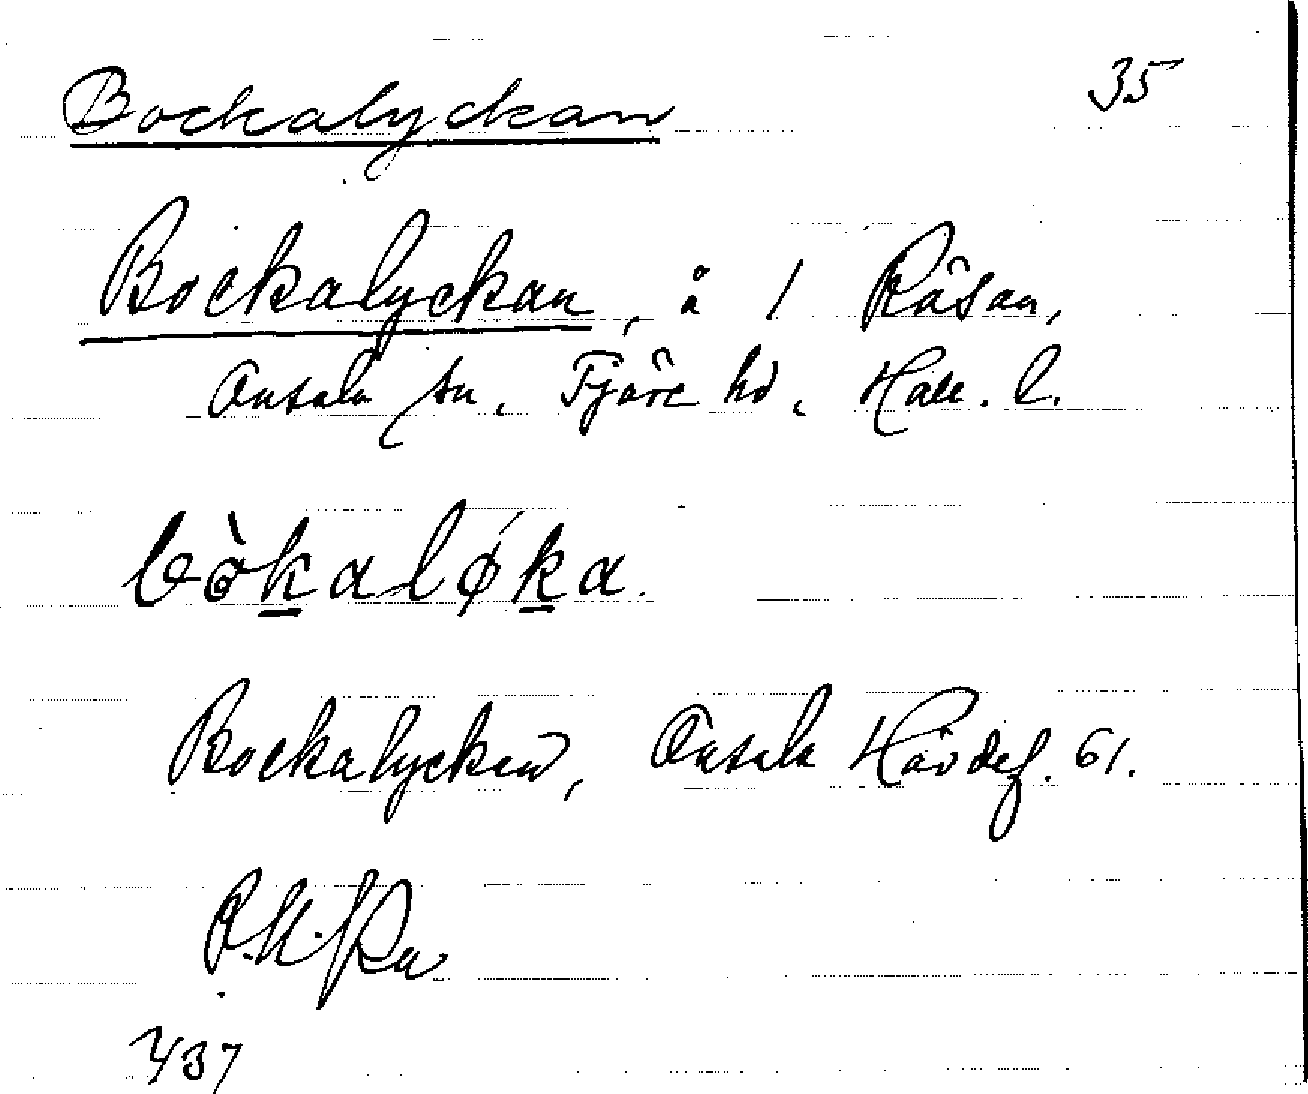 Bockalyckan 35
Bockalyckan, å 1 Råsan,
Onsala sn, Fjäre hd, Hall. l.
bòkaløka.
Bockalyckan, Onsala Hävdef. 61.
437